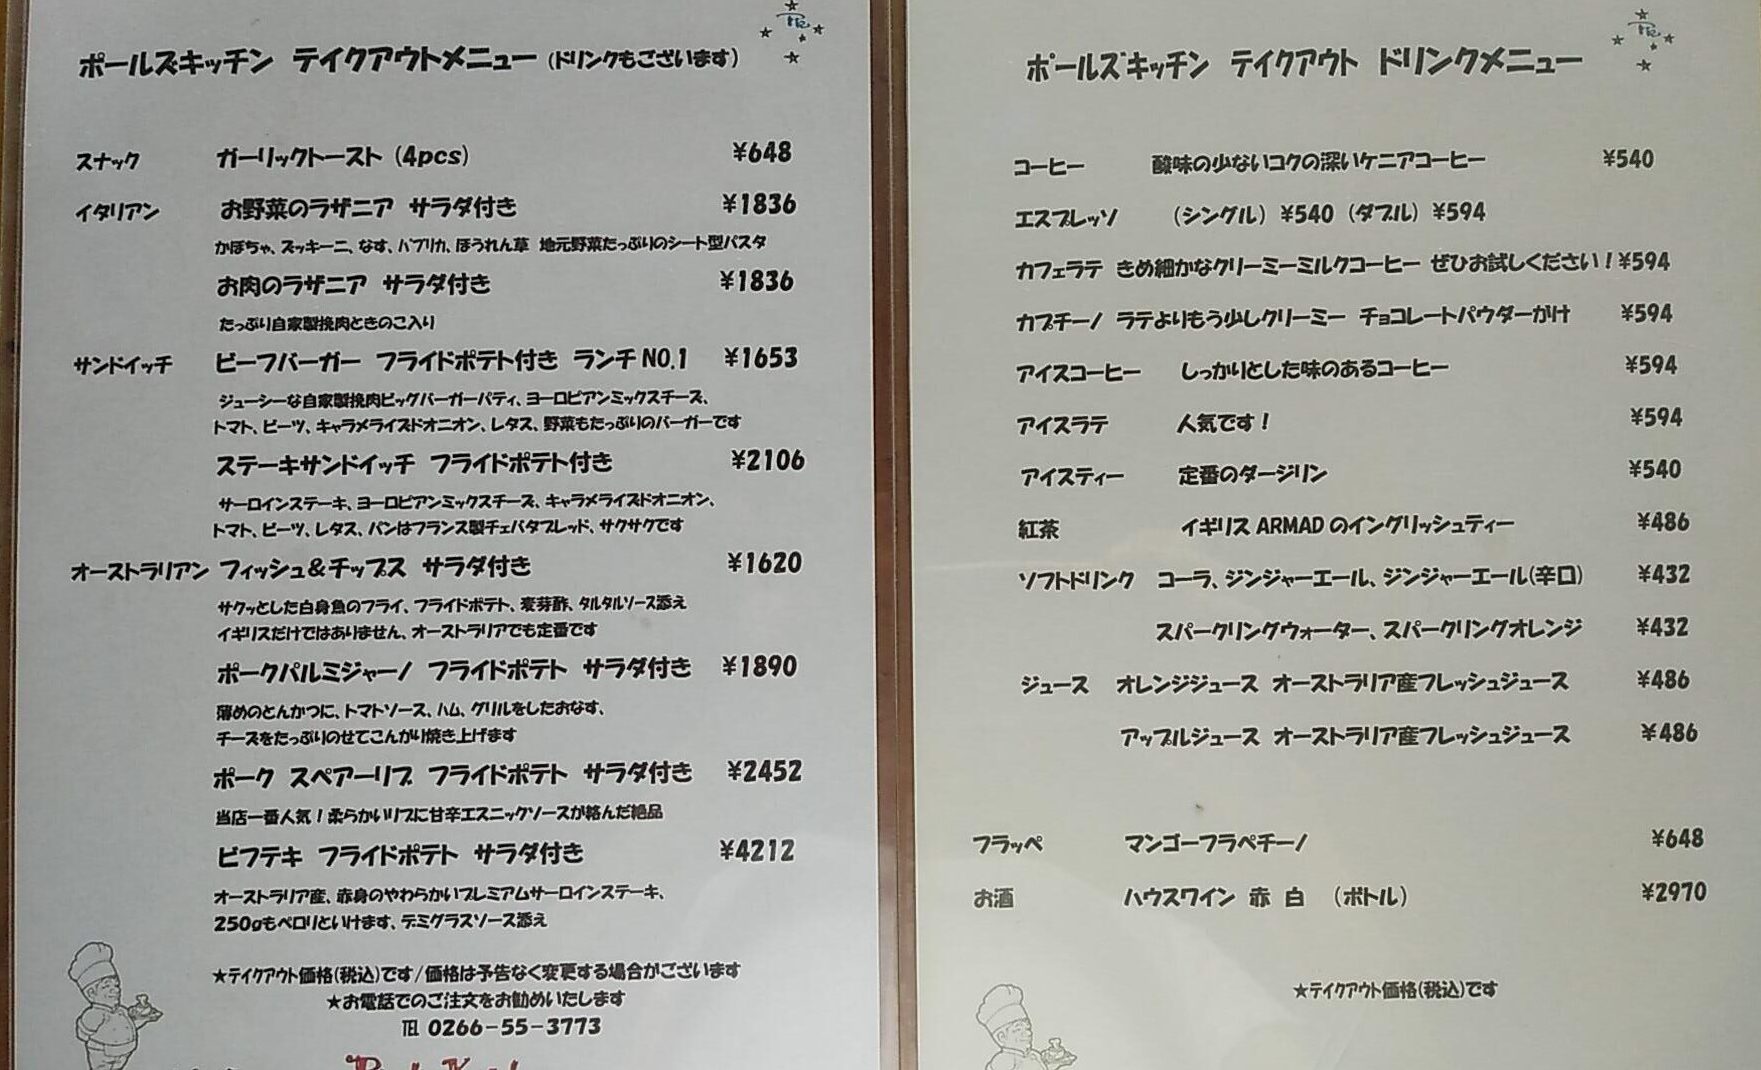 ポールズキッチン テイクアウトメニュー (ドリンクもございます)
スナック ガーリックトースト (4pcs) ¥648
イタリアン お野菜のラザニア サラダ付き ¥1836
かぼちゃ、ズッキーニ、なす、パプリカ、ほうれん草 地元野菜たっぷりのシート型パスタ
お肉のラザニア サラダ付き ¥1836
たっぷり自家製挽肉ときのこ入り
サンドイッチ ビーフバーガー フライドポテト付き ランチNO.1 ¥1653
ジューシーな自家製挽肉ビッグバーガーパティ、ヨーロピアンミックスチーズ、
トマト、ビーツ、キャラメライズドオニオン、レタス、野菜もたっぷりのバーガーです
ステーキサンドイッチ フライドポテト付き ¥2106
サーロインステーキ、ヨーロピアンミックスチーズ、キャラメライズドオニオン、
トマト、ビーツ、レタス、パンはフランス製チェバタブレッド、サクサクです
オーストラリアン フィッシュ&チップス サラダ付き ¥1620
サクッとした白身魚のフライ、フライドポテト、麦芽酢、タルタルソース添え
イギリスだけではありません、オーストラリアでも定番です
ポークパルミジャーノ フライドポテト サラダ付き ¥1890
薄めのとんかつに、トマトソース、ハム、グリルをしたおなす、
チーズをたっぷりのせてこんがり焼き上げます
ポーク スペアーリブ フライドポテト サラダ付き ¥2452
当店一番人気!柔らかいリブに甘辛エスニックソースが絡んだ絶品
ビフテキ フライドポテト サラダ付き ¥4212
オーストラリア産、赤身のやわらかいプレミアムサーロインステーキ、
250gもペロリといけます、デミグラスソース添え
★テイクアウト価格(税込)です/価格は予告なく変更する場合がございます
★お電話でのご注文をお勧めいたします
℡ 0266-55-3773
ポールズキッチン テイクアウト ドリンクメニュー
コーヒー 酸味の少ないコクの深いケニアコーヒー ¥540
エスプレッソ (シングル) ¥540 (ダブル) ¥594
カフェラテ きめ細かなクリーミーミルクコーヒー ぜひお試しください!¥594
カプチーノ ラテよりもう少しクリーミー チョコレートパウダーがけ ¥594
アイスコーヒー しっかりとした味のあるコーヒー ¥594
アイスラテ 人気です! ¥594
アイスティー 定番のダージリン ¥540
紅茶 イギリス ARMAD のイングリッシュティー ¥486
ソフトドリンク コーラ、ジンジャーエール、ジンジャーエール(辛口) ¥432
スパークリングウォーター、スパークリングオレンジ ¥432
ジュース オレンジジュース オーストラリア産フレッシュジュース ¥486
アップルジュース オーストラリア産フレッシュジュース ¥486
フラッペ マンゴーフラペチーノ ¥648
お酒 ハウスワイン 赤 白 (ボトル) ¥2970
★テイクアウト価格(税込)です